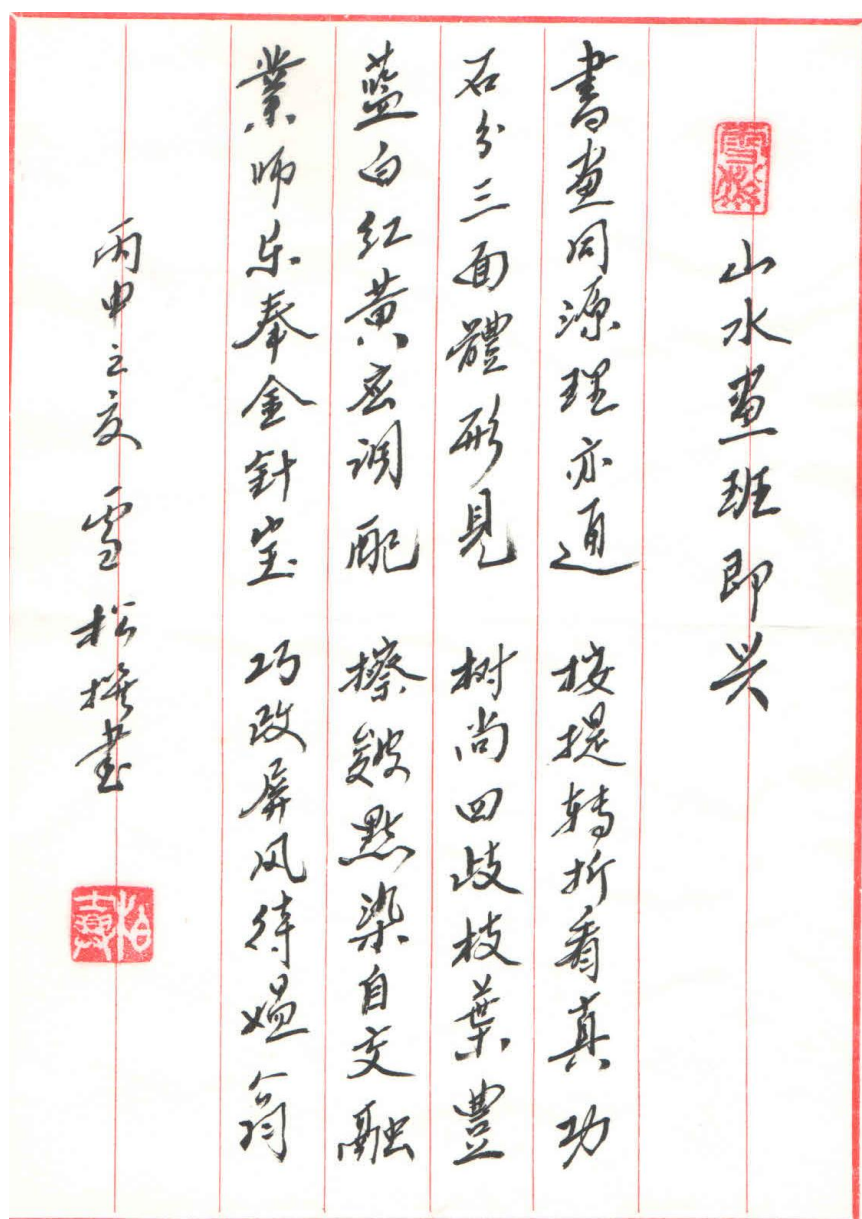 雪松
山水畫班即兴
書畫同源理亦通 按提轉折看真功
石分三面體形見 树尚四歧枝葉豐
藍白红黄调配 擦皴點染自交融
業師乐奉金針宝 巧改屏风待媪翁
丙申立夏 雪松撰書